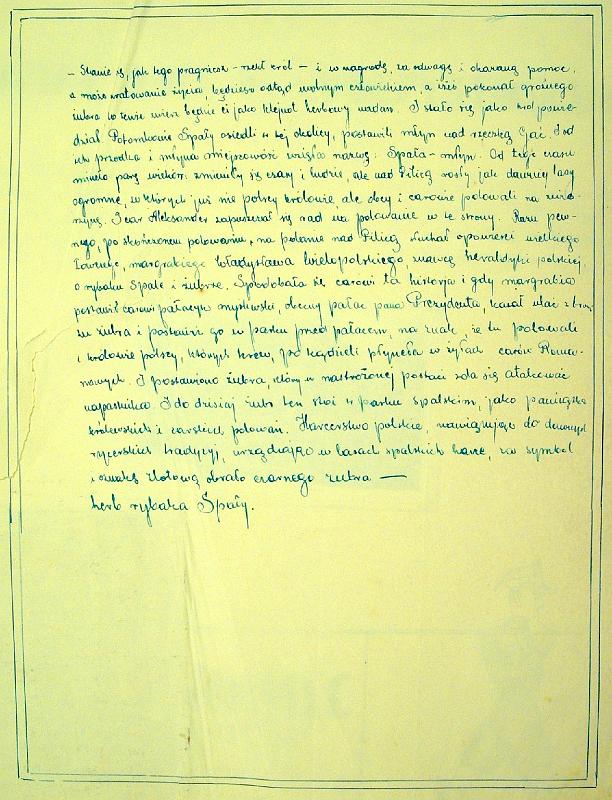 – Stanie się, jak tego pragniesz – rzekł król – i w nagrodę, za odwagę i okazaną pomoc,
a może uratowanie życia, będziesz odtąd wolnym człowiekiem, a iżeś pokonał groźnego
żubra to tenże zwierz będzie ci jako klejnot herbowy nadan. I stało się jako król powie-
dział. Potomkowie Spały osiedli w tej okolicy, postawili młyn nad rzeczką Gać. I od
ich przodka i młyna miejscowość wzięła nazwę: Spała – młyn. Od tego czasu
minęło parę wieków: zmieniły się czasy i ludzie, ale nad Pilicą rosły, jak dawniej lasy
ogromne, w których już nie polscy królowie, ale obcy i carowie polowali na zwie-
rzynę. I car Aleksander zapuszczał się rad na polowanie w te strony. Razu pew-
nego, po skończonem polowaniu, na polanie nad Pilicą słuchał opowieści wielkiego
łowczego, margrabiego Władysława Wielopolskiego znawcę heraldyki polskiej,
o rybaku Spale i żubrze. Spodobała się carowi ta historja i gdy margrabia
postawił carowi pałacyk myśliwski, obecny pałac pana Prezydenta, kazał ulać z bron-
zu żubra i postawić go w parku przed pałacem, na znak, że tu polowali
i królowie polscy, których krew, po kądzieli płynęła w żyłach carów Roma-
nowych. I postawiono żubra, który w nastroszonej postaci zda się atakować
napastnika. I do dzisiaj żubr ten stoi w parku spalskim, jako pamiątka
królewskich i carskich polowań. Harcerstwo polskie, nawiązując do dawnych
rycerskich tradycyj, urządzając w lasach spalskich harce, za symbol
i oznakę zlotową obrało czarnego żubra —
herb rybaka Spały.